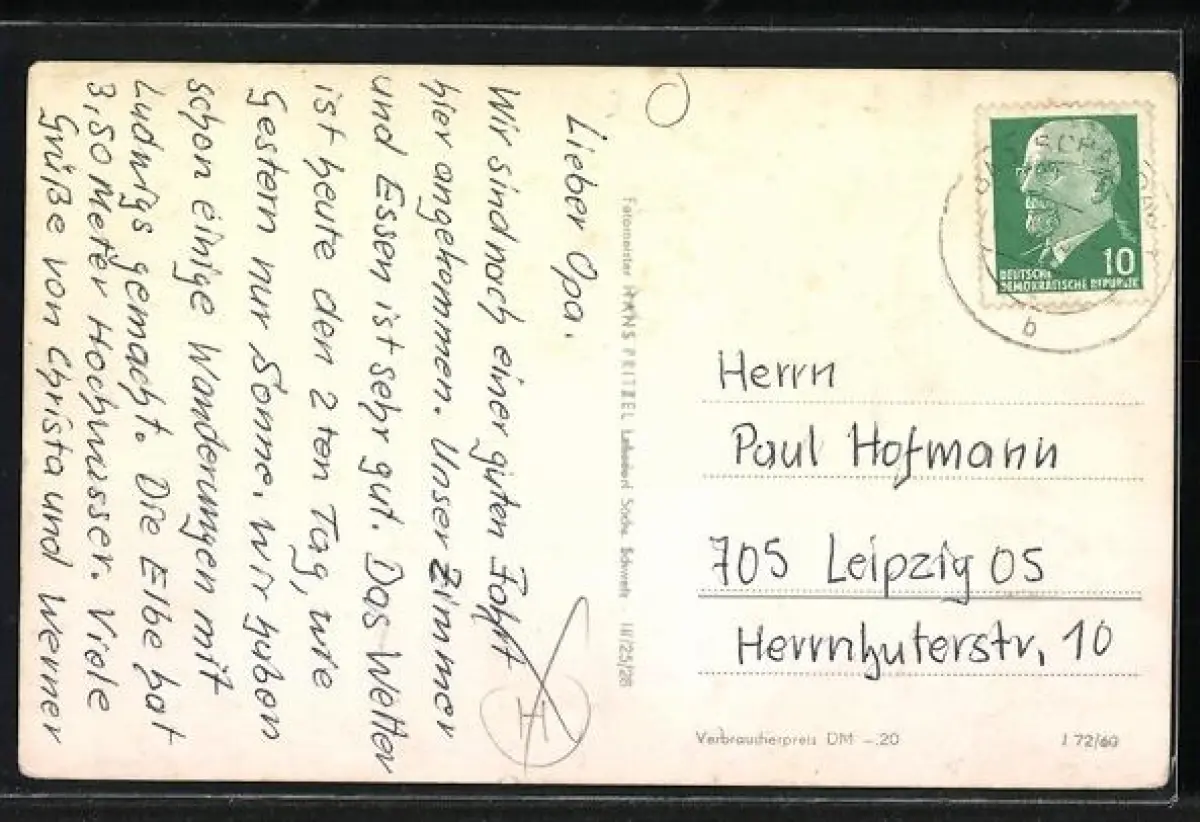 Lieber Opa.
Wir sind nach einer guten Fahrt
hier angekommen. Unser Zimmer
und Essen ist sehr gut. Das Wetter
ist heute den 2 ten Tag, wie
Gestern nur Sonne. Wir haben
schon einige Wanderungen mit
Ludwigs gemacht. Die Elbe hat
3,50 Meter Hochwasser. Viele
Grüße von Christa und Werner
Fotomeister HANS PRITZEL
III/25/28
DEUTSCHE
DEMOKRATISCHE REPUBLIK
10
b
Herrn
Paul Hofmann
705 Leipzig O5
Herrnhuterstr, 10
Verbraucherpreis DM -.20
I 72/60
H